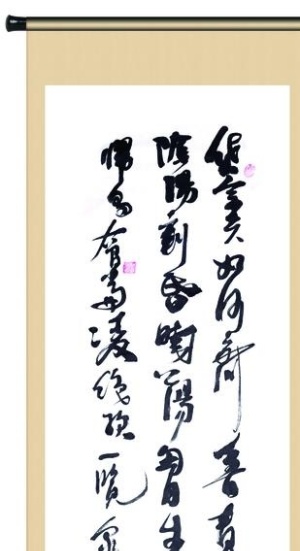 岱宗夫如何齊魯青
陰陽割昏曉蕩胸生
歸鳥會當凌絕頂一覽眾